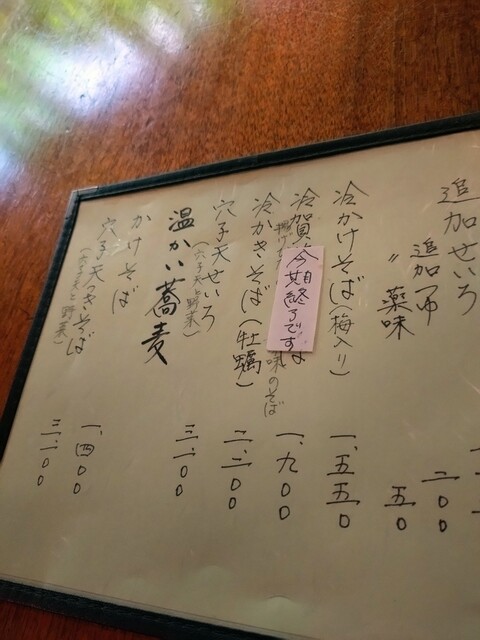 追加せいろ
追加つゆ 二〇〇
〃 薬味 五〇
冷かけそば(梅入り) 一、五五〇
冷賀 のそば 一、九〇〇
今期終了です
冷かきそば(牡蠣) 二、三〇〇
穴子天せいろ 三、一〇〇
(穴子天と野菜)
温かい蕎麦
かけそば 一、四〇〇
穴子天つきそば 三、一〇〇
(穴子天と野菜)